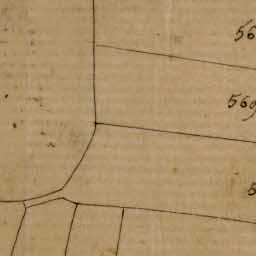 56
569
5